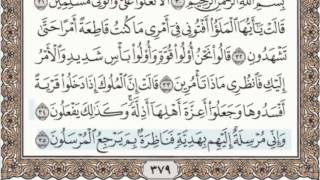 بِسْمِ اللَّهِ الرَّحْمَٰنِ الرَّحِيمِ ٣٠ أَلَّا تَعْلُوا عَلَيَّ وَأْتُونِي مُسْلِمِينَ ٣١
قَالَتْ يَا أَيُّهَا الْمَلَأُ أَفْتُونِي فِي أَمْرِي مَا كُنتُ قَاطِعَةً أَمْرًا حَتَّىٰ
تَشْهَدُونِ ٣٢ قَالُوا نَحْنُ أُولُو قُوَّةٍ وَأُولُو بَأْسٍ شَدِيدٍ وَالْأَمْرُ
إِلَيْكِ فَانظُرِي مَاذَا تَأْمُرِينَ ٣٣ قَالَتْ إِنَّ الْمُلُوكَ إِذَا دَخَلُوا قَرْيَةً
أَفْسَدُوهَا وَجَعَلُوا أَعِزَّةَ أَهْلِهَا أَذِلَّةً ۖ وَكَذَٰلِكَ يَفْعَلُونَ ٣٤
وَإِنِّي مُرْسِلَةٌ إِلَيْهِم بِهَدِيَّةٍ فَنَاظِرَةٌ بِمَ يَرْجِعُ الْمُرْسَلُونَ ٣٥
٣٧٩